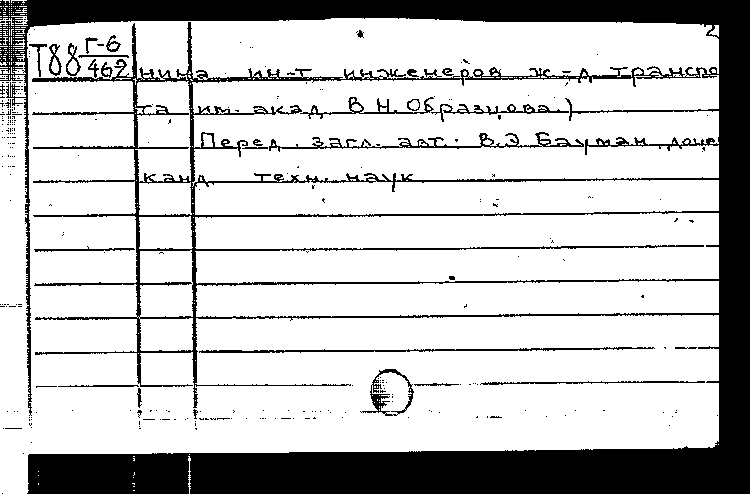 2
Т88 Г-6/462
нина ин-т инженеров ж.-д. транспо
та им. акад. В.Н. Образцова.)
Перед загл. авт.: В.Э. Бауман, доце
канд. техн. наук